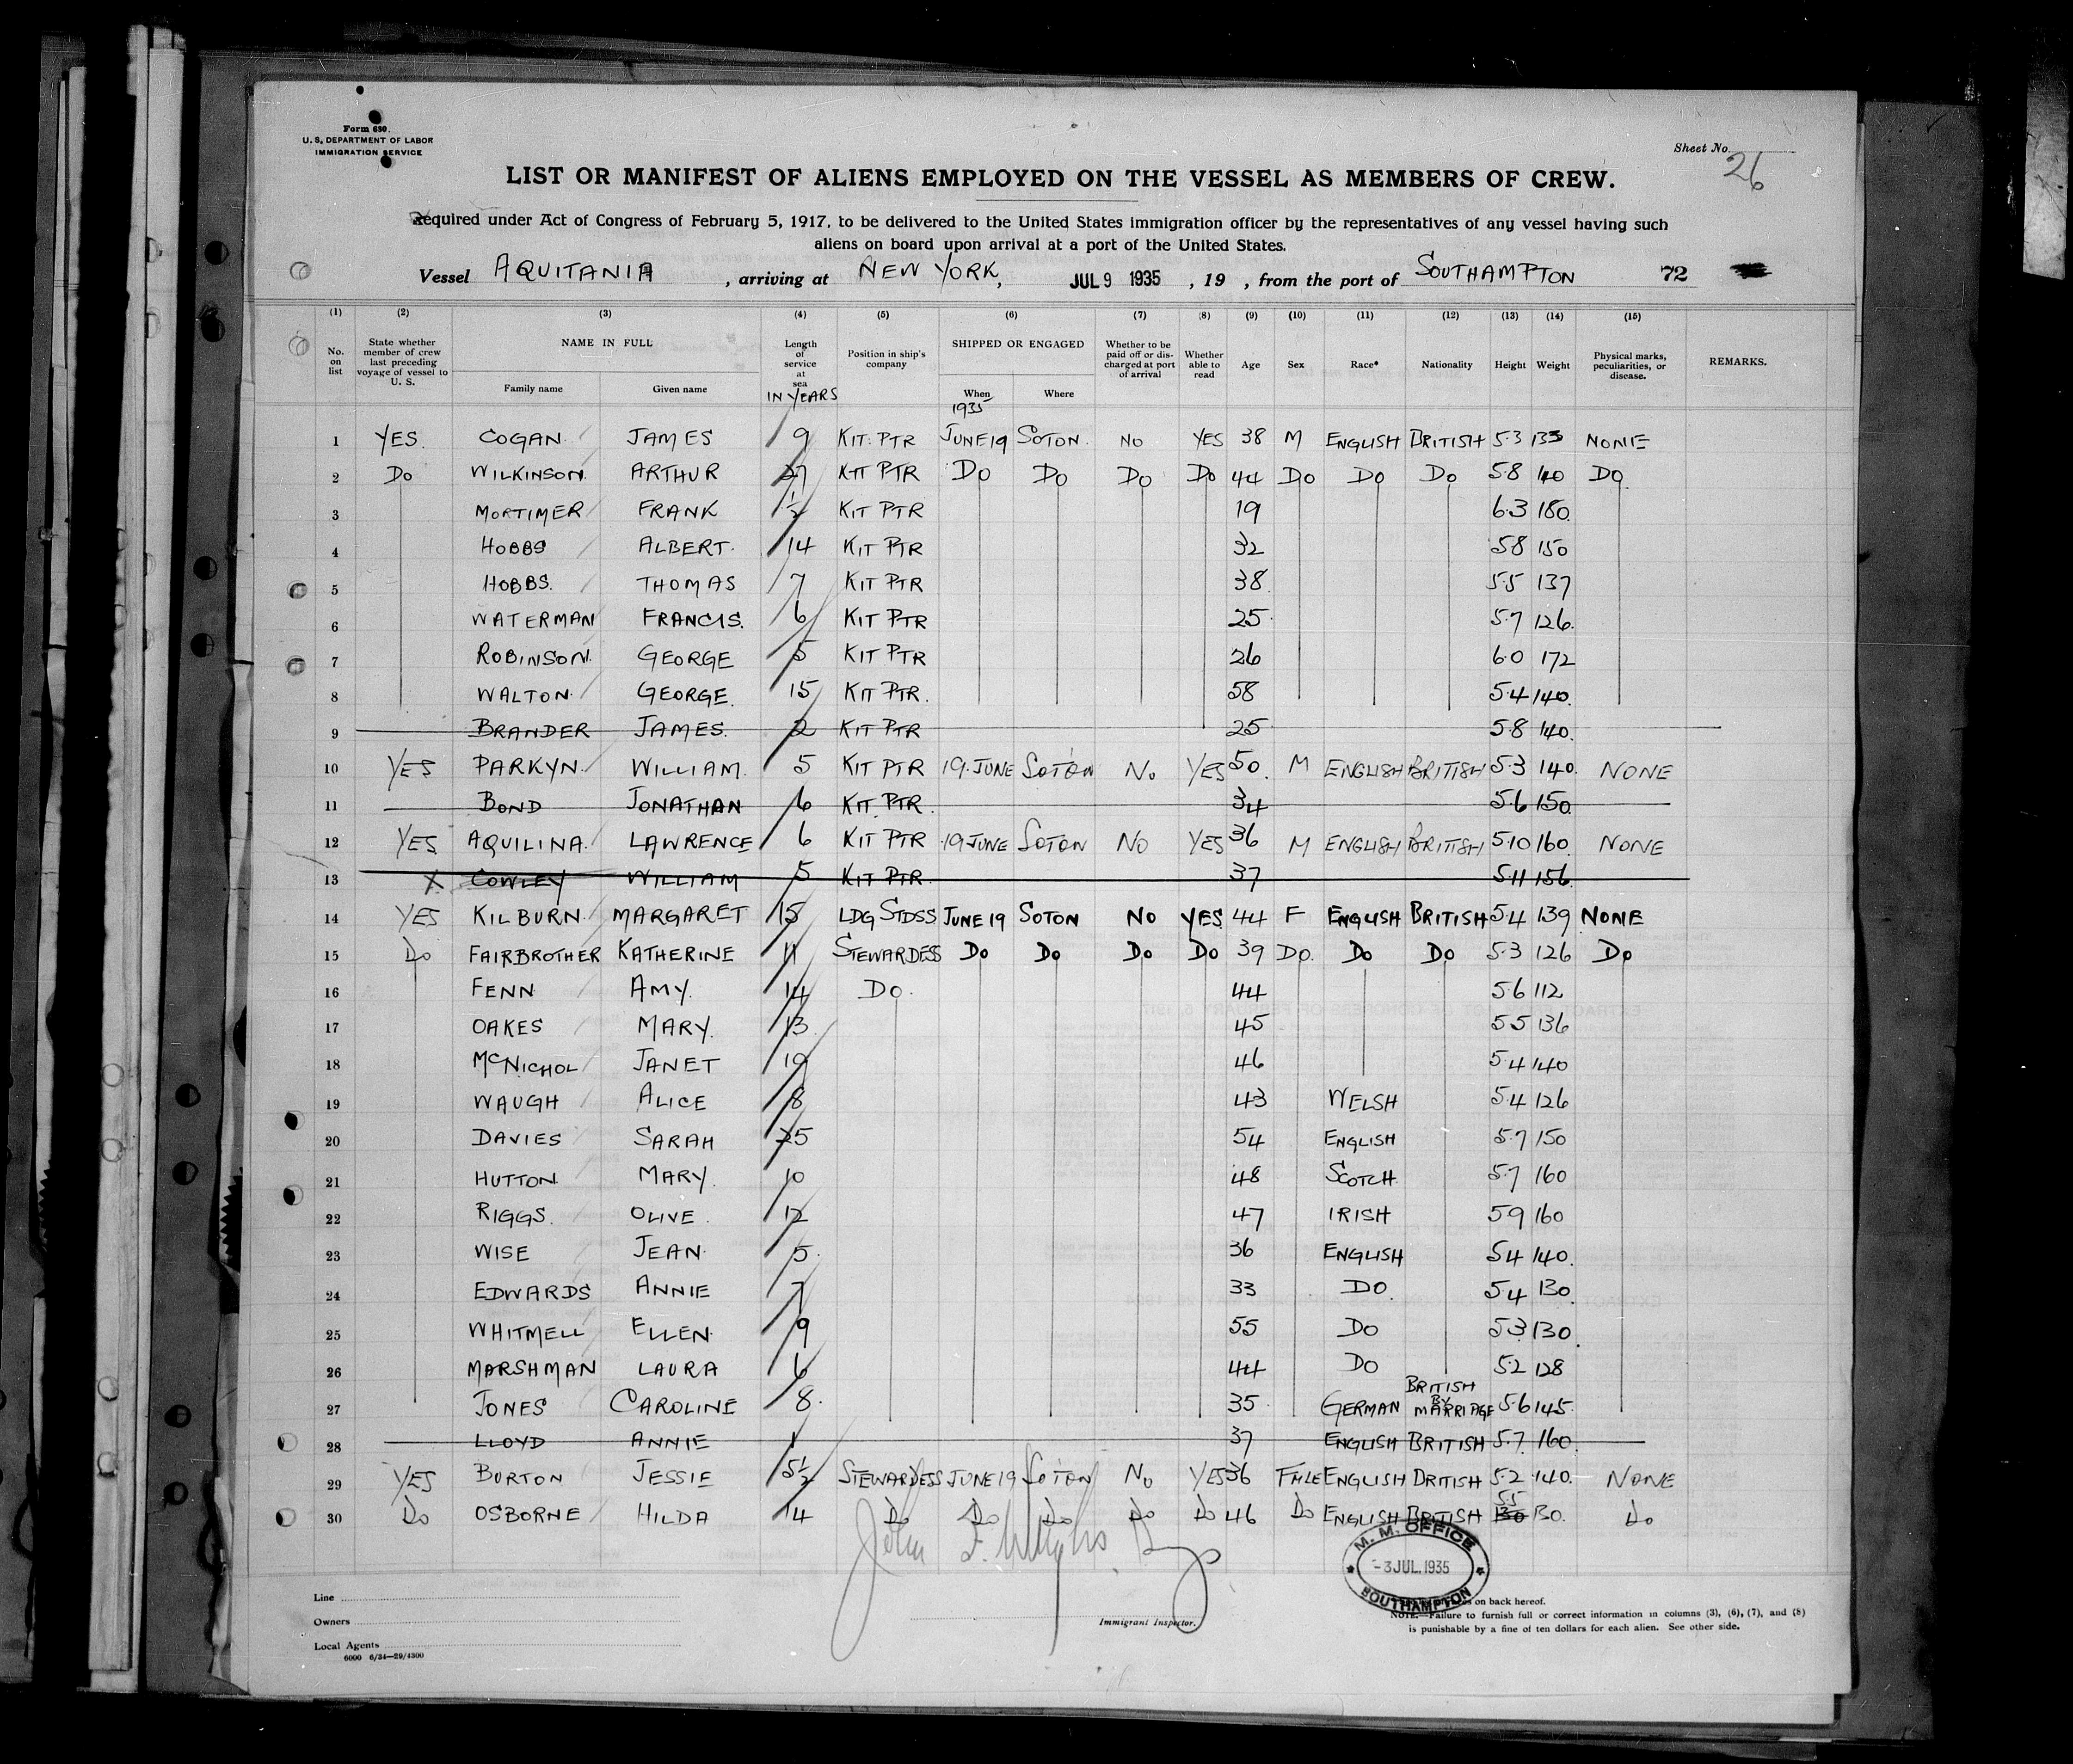 Form 630.
U. S. DEPARTMENT OF LABOR
IMMIGRATION SERVICE
Sheet No. 26
LIST OR MANIFEST OF ALIENS EMPLOYED ON THE VESSEL AS MEMBERS OF CREW.
Required under Act of Congress of February 5, 1917, to be delivered to the United States immigration officer by the representatives of any vessel having such
aliens on board upon arrival at a port of the United States.
Vessel AQUITANIA , arriving at NEW YORK, JUL 9 1935 , 19 , from the port of SOUTHAMPTON 72
(1) (2) (3) (4) (5) (6) (7) (8) (9) (10) (11) (12) (13) (14) (15)
No. on list State whether member of crew last preceding voyage of vessel to U. S. NAME IN FULL Family name Given name Length of service at sea IN YEARS Position in ship's company SHIPPED OR ENGAGED When 1935 Where Whether to be paid off or discharged at port of arrival Whether able to read Age Sex Race* Nationality Height Weight Physical marks, peculiarities, or disease. REMARKS.
1 YES COGAN JAMES 9 KIT: PTR JUNE 19 SOTON. NO YES 38 M ENGLISH BRITISH 5·3 135 NONE
2 DO WILKINSON ARTHUR 27 KIT PTR DO DO DO DO 44 DO DO DO 5·8 140 DO
3 MORTIMER FRANK ½ KIT PTR 19 6·3 180
4 HOBBS ALBERT. 14 KIT PTR 32 5·8 150
5 HOBBS. THOMAS 7 KIT PTR 38 5·5 137
6 WATERMAN FRANCIS. 6 KIT PTR 25 5·7 126.
7 ROBINSON. GEORGE 5 KIT PTR 26 6·0 172
8 WALTON GEORGE. 15 KIT PTR. 58 5·4 140.
9 BRANDER JAMES. 2 KIT PTR 25 5·8 140.
10 YES PARKYN WILLIAM. 5 KIT PTR 19. JUNE SOTON NO YES 50. M ENGLISH BRITISH 5·3 140. NONE
11 BOND JONATHAN 6 KIT PTR. 34 5·6 150
12 YES AQUILINA LAWRENCE 6 KIT PTR 19 JUNE SOTON NO YES 36 M ENGLISH BRITISH 5·10 160 NONE
13 X COWLEY WILLIAM 5 KIT PTR. 37 5·11 156
14 YES KILBURN MARGARET 15 LDG STDSS JUNE 19 SOTON NO YES 44 F ENGLISH BRITISH 5·4 139 NONE
15 DO FAIRBROTHER KATHERINE 11 STEWARDESS DO DO DO DO 39 DO. DO DO 5·3 126 DO
16 FENN AMY. 14 DO. 44 5·6 112
17 OAKES MARY. 13 45 5·5 136
18 McNICHOL JANET 19 46 5·4 140
19 WAUGH ALICE 8 43 WELSH 5·4 126
20 DAVIES SARAH 25 54 ENGLISH 5·7 150
21 HUTTON MARY. 10 48 SCOTCH 5·7 160
22 RIGGS. OLIVE. 12 47 IRISH 5·9 160
23 WISE JEAN. 5 36 ENGLISH 5·4 140.
24 EDWARDS ANNIE 7 33 DO. 5·4 130
25 WHITMELL ELLEN. 9 55 DO 5·3 130
26 MARSHMAN LAURA 6 44 DO 5·2 128
27 JONES CAROLINE 8. 35 GERMAN BRITISH BY MARRIAGE 5·6 145
28 LLOYD ANNIE 1 37 ENGLISH BRITISH 5·7 160
29 YES BURTON JESSIE 5½ STEWARDESS JUNE 19 SOTON NO YES 36 FMLE ENGLISH BRITISH 5·2 140. NONE
30 DO OSBORNE HILDA 14 DO DO DO DO DO 46 DO ENGLISH BRITISH 130 5·5 130. DO
M. M. OFFICE
-3 JUL. 1935
SOUTHAMPTON
Line
Owners
Local Agents
6000 6/34—29/4300
Immigrant Inspector.
on back hereof.
NOTE.—Failure to furnish full or correct information in columns (3), (6), (7), and (8)
is punishable by a fine of ten dollars for each alien. See other side.